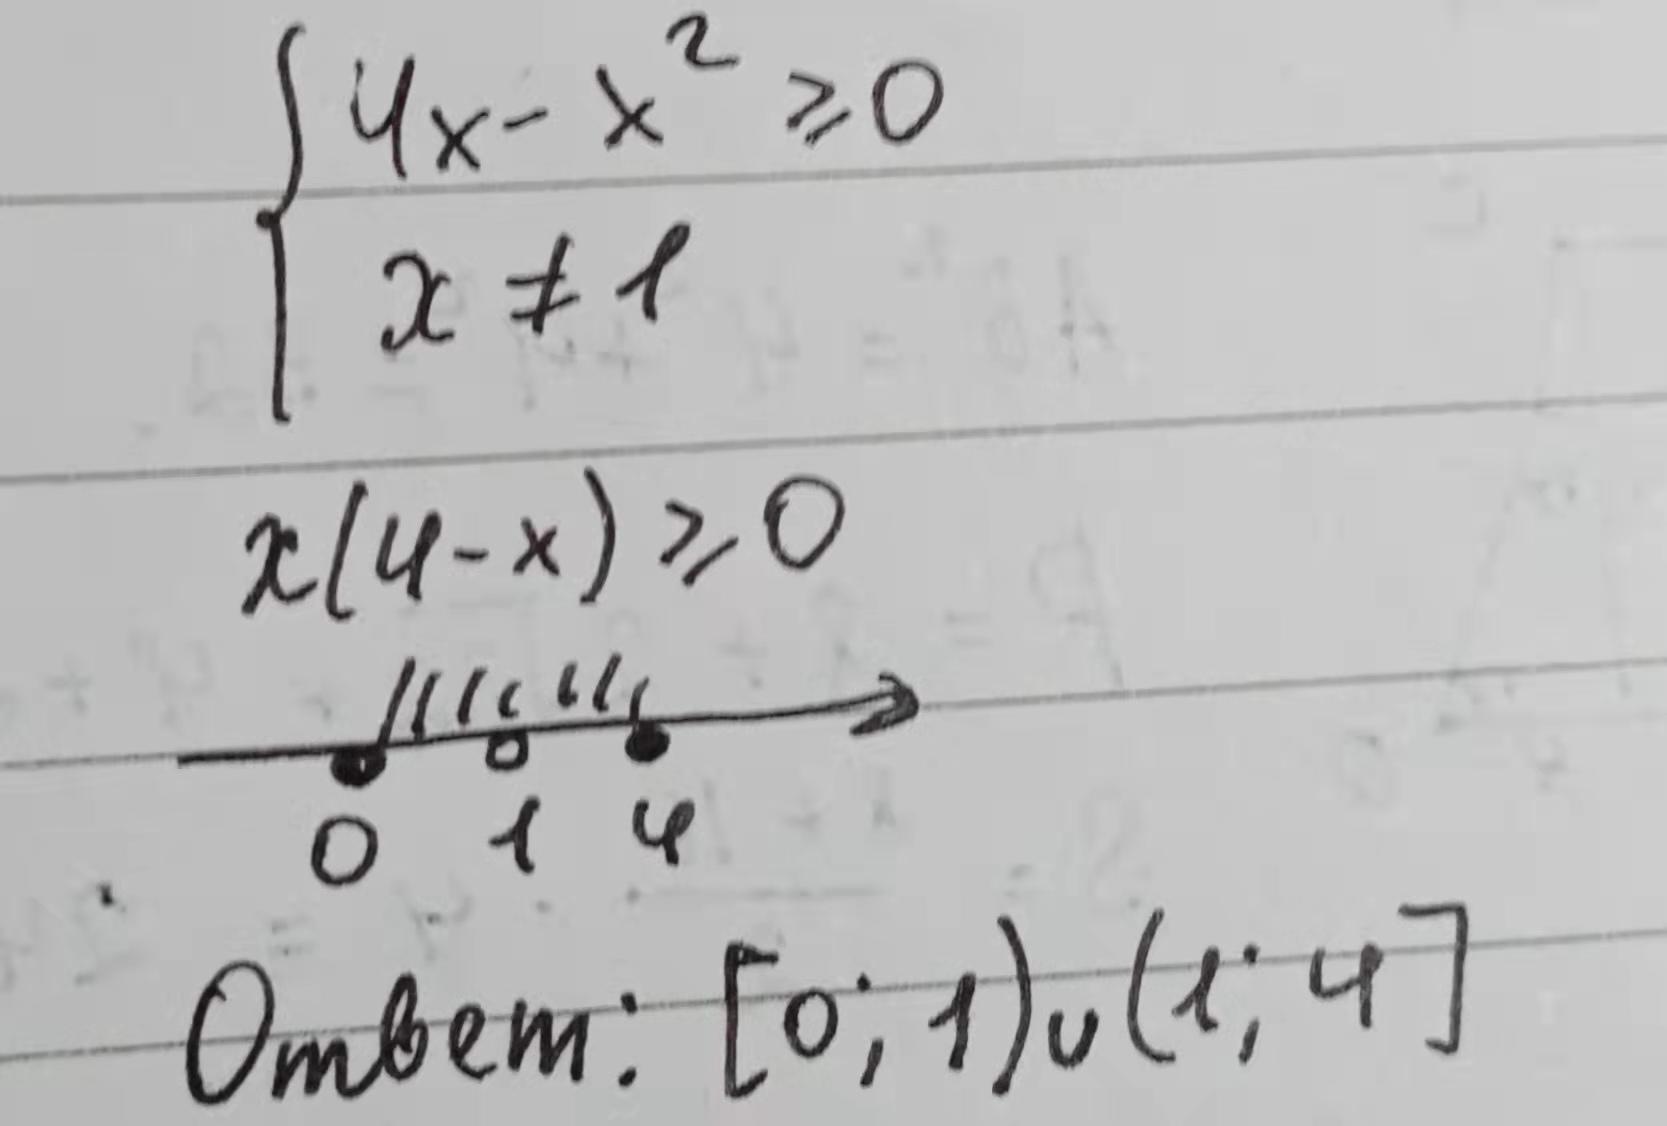 4x - x² ⩾ 0
x ≠ 1
x(4 - x) ⩾ 0
0 1 4
Ответ: [0; 1) ∪ (1; 4]